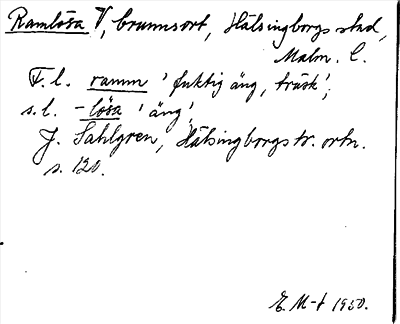 Ramlösa V, brunnsort, Hälsingborgs stad,
Malm. l.
F. l. ramm 'fuktig äng, träsk';
s. l. -lösa 'äng'.
J. Sahlgren, Hälsingborgstr. ortn.
s. 120.
E. M-t 1950.